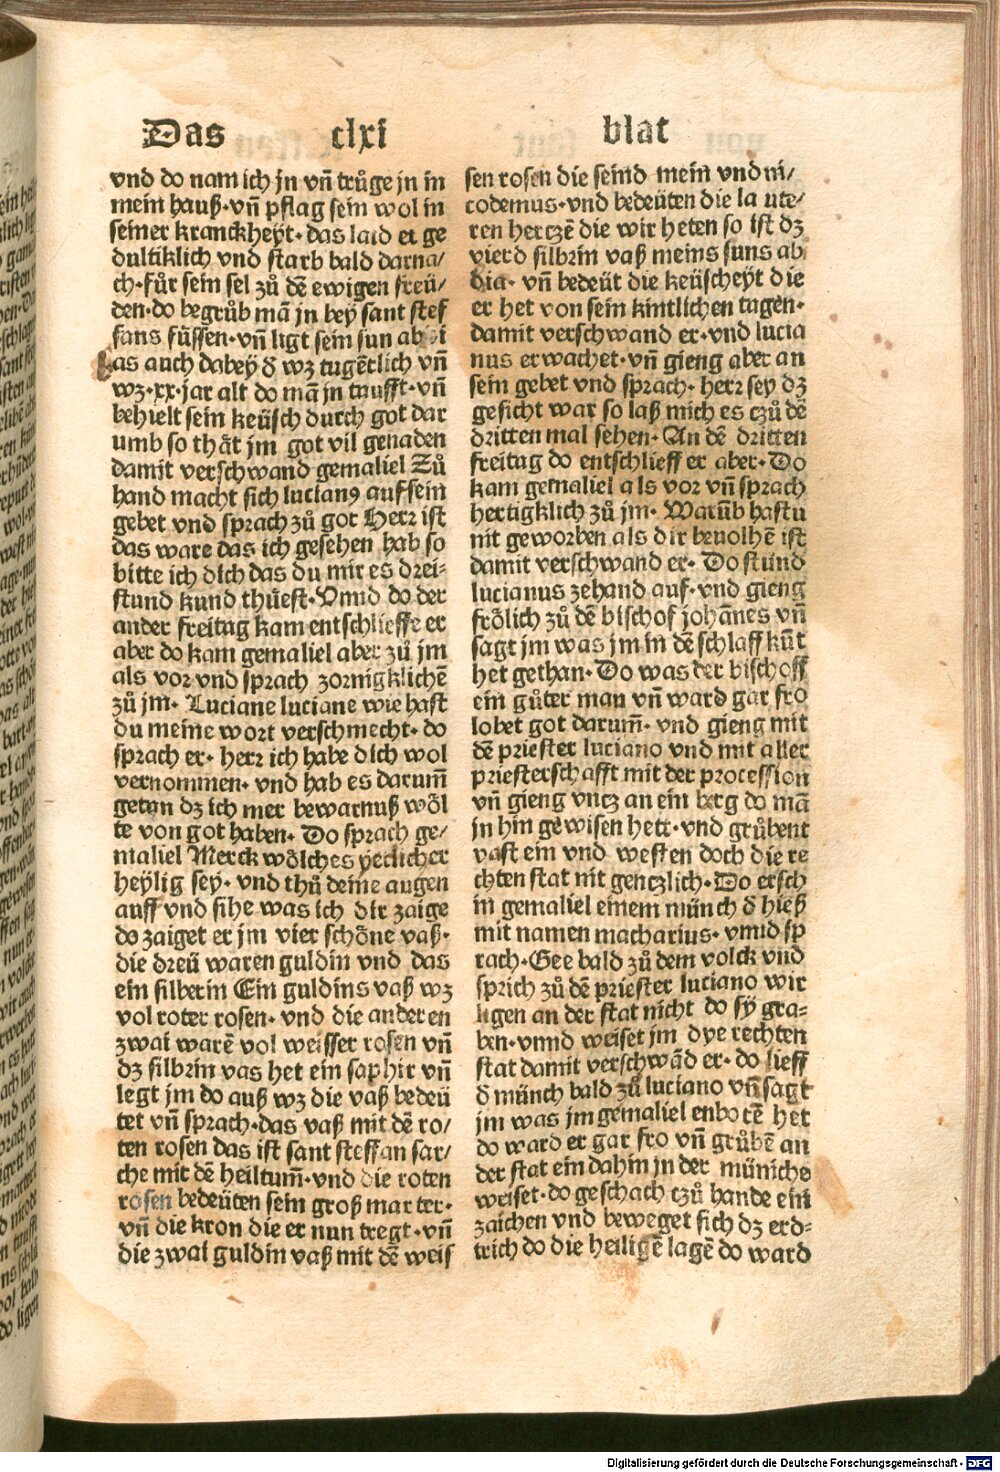 Das clxi blat
vnd do nam ich jn vñ trůge jn in
mein hauß·vñ pflag sein wol in
seiner kranckheyt·das laid er ge
dultiklich vnd starb bald darna/
ch·fůr sein sel zů dē ewigen freü/
den·do begrůb mā jn bey sant stef
fans füssen·vñ ligt sein sun abdi
as auch dabey d̛ wz tugētlich vñ
wz·xx·jar alt do mā jn taufft·vñ
behielt sein keüsch durch got dar
umb so thāt jm got vil genaden
damit verschwand gemaliel Zů
hand macht sich lucianꝰ auf sein
gebet vnd sprach zů got Herr ist
das ware das ich gesehen hab so
bitte ich dich das du mir es drei-
stund kund thüest·Vmd do der
ander freitag kam entschlieffe er
aber do kam gemaliel aber zů jm
als vor vnd sprach zornigklichē
zů jm· Luciane luciane wie hast
du meine wort verschmecht· do
sprach er· herr ich habe dich wol
vernommen· vnd hab es darum̄
getan dz ich mer bewarnuß wöl
te von got haben· Do sprach ge/
maliel Merck wölches yeclicher
heylig sey· vnd thů deine augen
auff vnd sihe was ich dir zaige
do zaiget er jm vier schöne vaß·
die dreü waren guldin vnd das
ein silberin Ein guldins vaß wz
vol roter rosen· vnd die anderen
zwai warē vol weisser rosen vñ
dz silbrin vas het ein saphir vñ
legt jm do auß wz die vaß bedeü
tet vñ sprach·das vaß mit dē ro/
ten rosen das ist sant steffan sar/
che mit dē heiltum̄·vnd die roten
rosen bedeüten sein groß marter·
vñ die kron die er nun tregt·vñ
die zwai guldin vaß mit dē weis
sen rosen die seind mein vnd ni/
codemus·vnd bedeüten die laute/
ren hertzē die wir heten so ist dz
vierd silbrin vaß meins suns ab
dia· vñ bedeüt die keüscheyt die
er het von sein kintlichen tagen·
damit verschwand er·vnd lucia
nus erwachet·vñ gieng aber an
sein gebet vnd sprach· herr sey dz
gesicht war so laß mich es czů dē
dritten mal sehen·An dē dritten
freitag do entschlieff er aber·Do
kam gemaliel als vor vñ sprach
hertigklich zů jm· Warūb hastu
nit geworben als dir beuolhē ist
damit verschwand er· Do stund
lucianus zehand auf·vnd gieng
frölich zů dē bischof johānes vñ
sagt jm was jm in dē schlaff kūt
het gethan·Do was der bischoff
ein gůter man vñ ward gar fro
lobet got darum̄· vnd gieng mit
dē priester luciano vnd mit aller
priesterschafft mit der procession
vñ gieng vncz an ein berg do mā
jn hin gewisen hett·vnd grůbent
vast ein vnd westen doch die re
chten stat nit genczlich·Do ersch
in gemaliel einem münch d̛ hieß
mit namen macharius· vmid sp
rach·Gee bald zů dem volck vnd
sprich zů dē priester luciano wir
ligen an der stat nicht do sy gra-
ben·vmid weiset jm dye rechten
stat damit verschwād er· do lieff
d̛ münch bald zů luciano vñ sagt
jm was jm gemaliel enbotē het
do ward er gar fro vñ grůbē an
der stat ein dahin jn der müniche
weiset·do geschach czů hande ein
zaichen vnd beweget sich dz erd-
trich do die heiligē lagē do ward
Digitalisierung gefördert durch die Deutsche Forschungsgemeinschaft - DFG